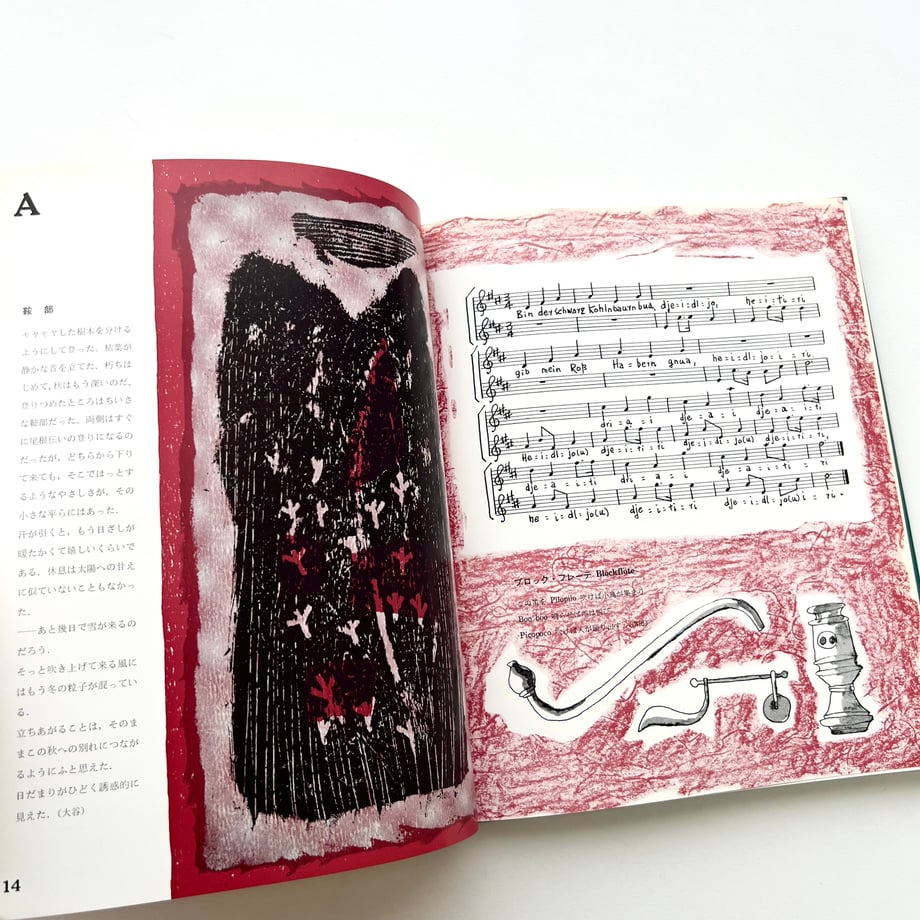 A
鞍部
モヤモヤした樹木を分ける
ようにして登った．枯葉が
静かな音を立てた．朽ちは
じめて，秋はもう深いのだ．
登りつめたところはちいさ
な鞍部だった．両側はすぐ
に尾根伝いの登りになるの
だったが，どちらから下り
て来ても，そこでほっとす
るようなやさしさが，その
小さな平らにはあった．
汗が引くと，もう日ざしが
暖たかくて嬉しいくらいで
ある．休息は太陽への甘え
に似ていないこともなかっ
た．
——あと幾日で雪が来るの
だろう．
そっと吹き上げて来る風に
はもう冬の粒子が混ってい
る．
立ちあがることは，そのま
まこの秋への別れにつなが
るようにふと思えた．
日だまりがひどく誘惑的に
見えた．(大谷)
14
Bin derschwarz Kohlnbaurnbua, dje=i=dl=jo, he=i=ti=ri
gib mein Roß Ha=bern gnua, he=i=dl=jo=i=ri.
dri=a=i dje=a=i dje=a=i=ti
He=i=dl=jo(u) dje=i=ti=ri dje=i=dl=jo(u) dje=i=ti=ri,
dje=a=i=ti dri=a=i dje=a=i=ti=ri
he=i=dl=jo(u) dje=i=ti=ri dje=i=dl=jo(u)i=ri.
ブロック・フレーテ Blockflöte
この笛を Pilopilo 吹けば小鳥が集まり
Boo boo
Picopoco